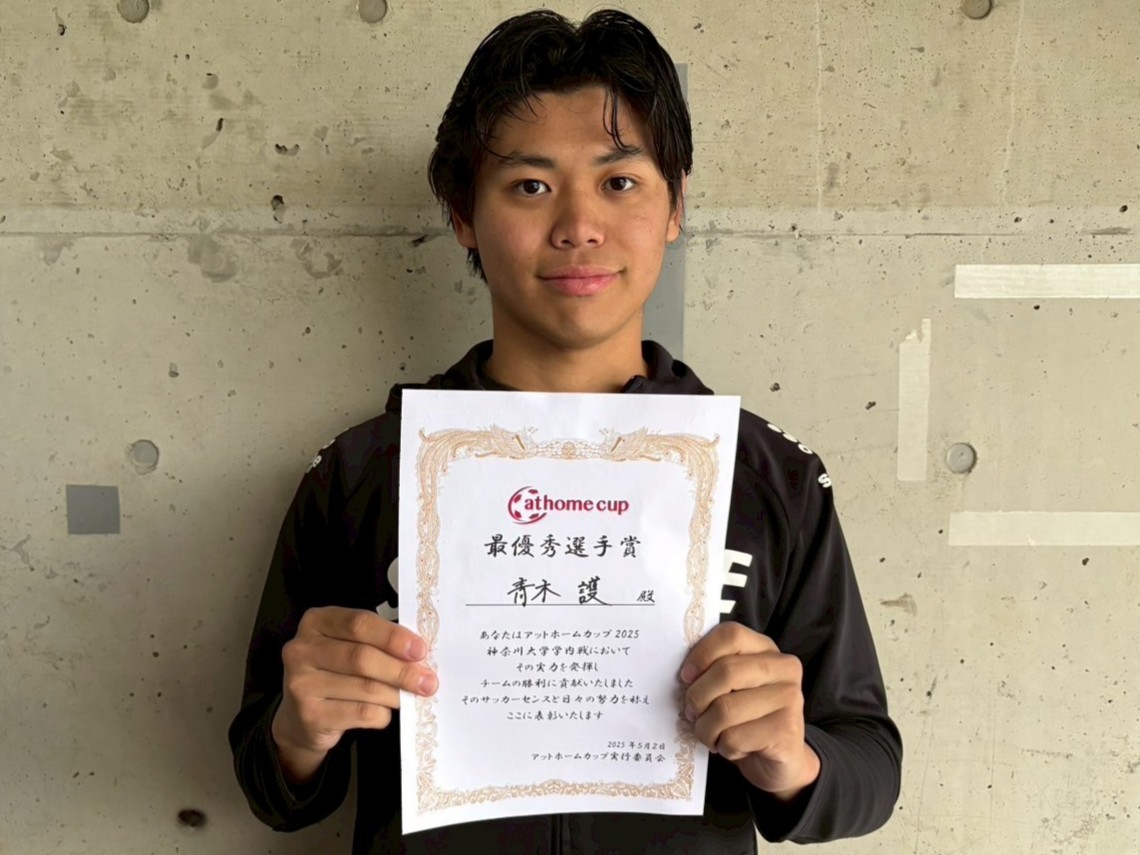 athome cup
最優秀選手賞
青木 護 殿
あなたはアットホームカップ 2025
神奈川大学学内戦において
その実力を発揮し
チームの勝利に貢献いたしました
そのサッカーセンスと日々の努力を称え
ここに表彰いたします
2025年5月2日
アットホームカップ実行委員会